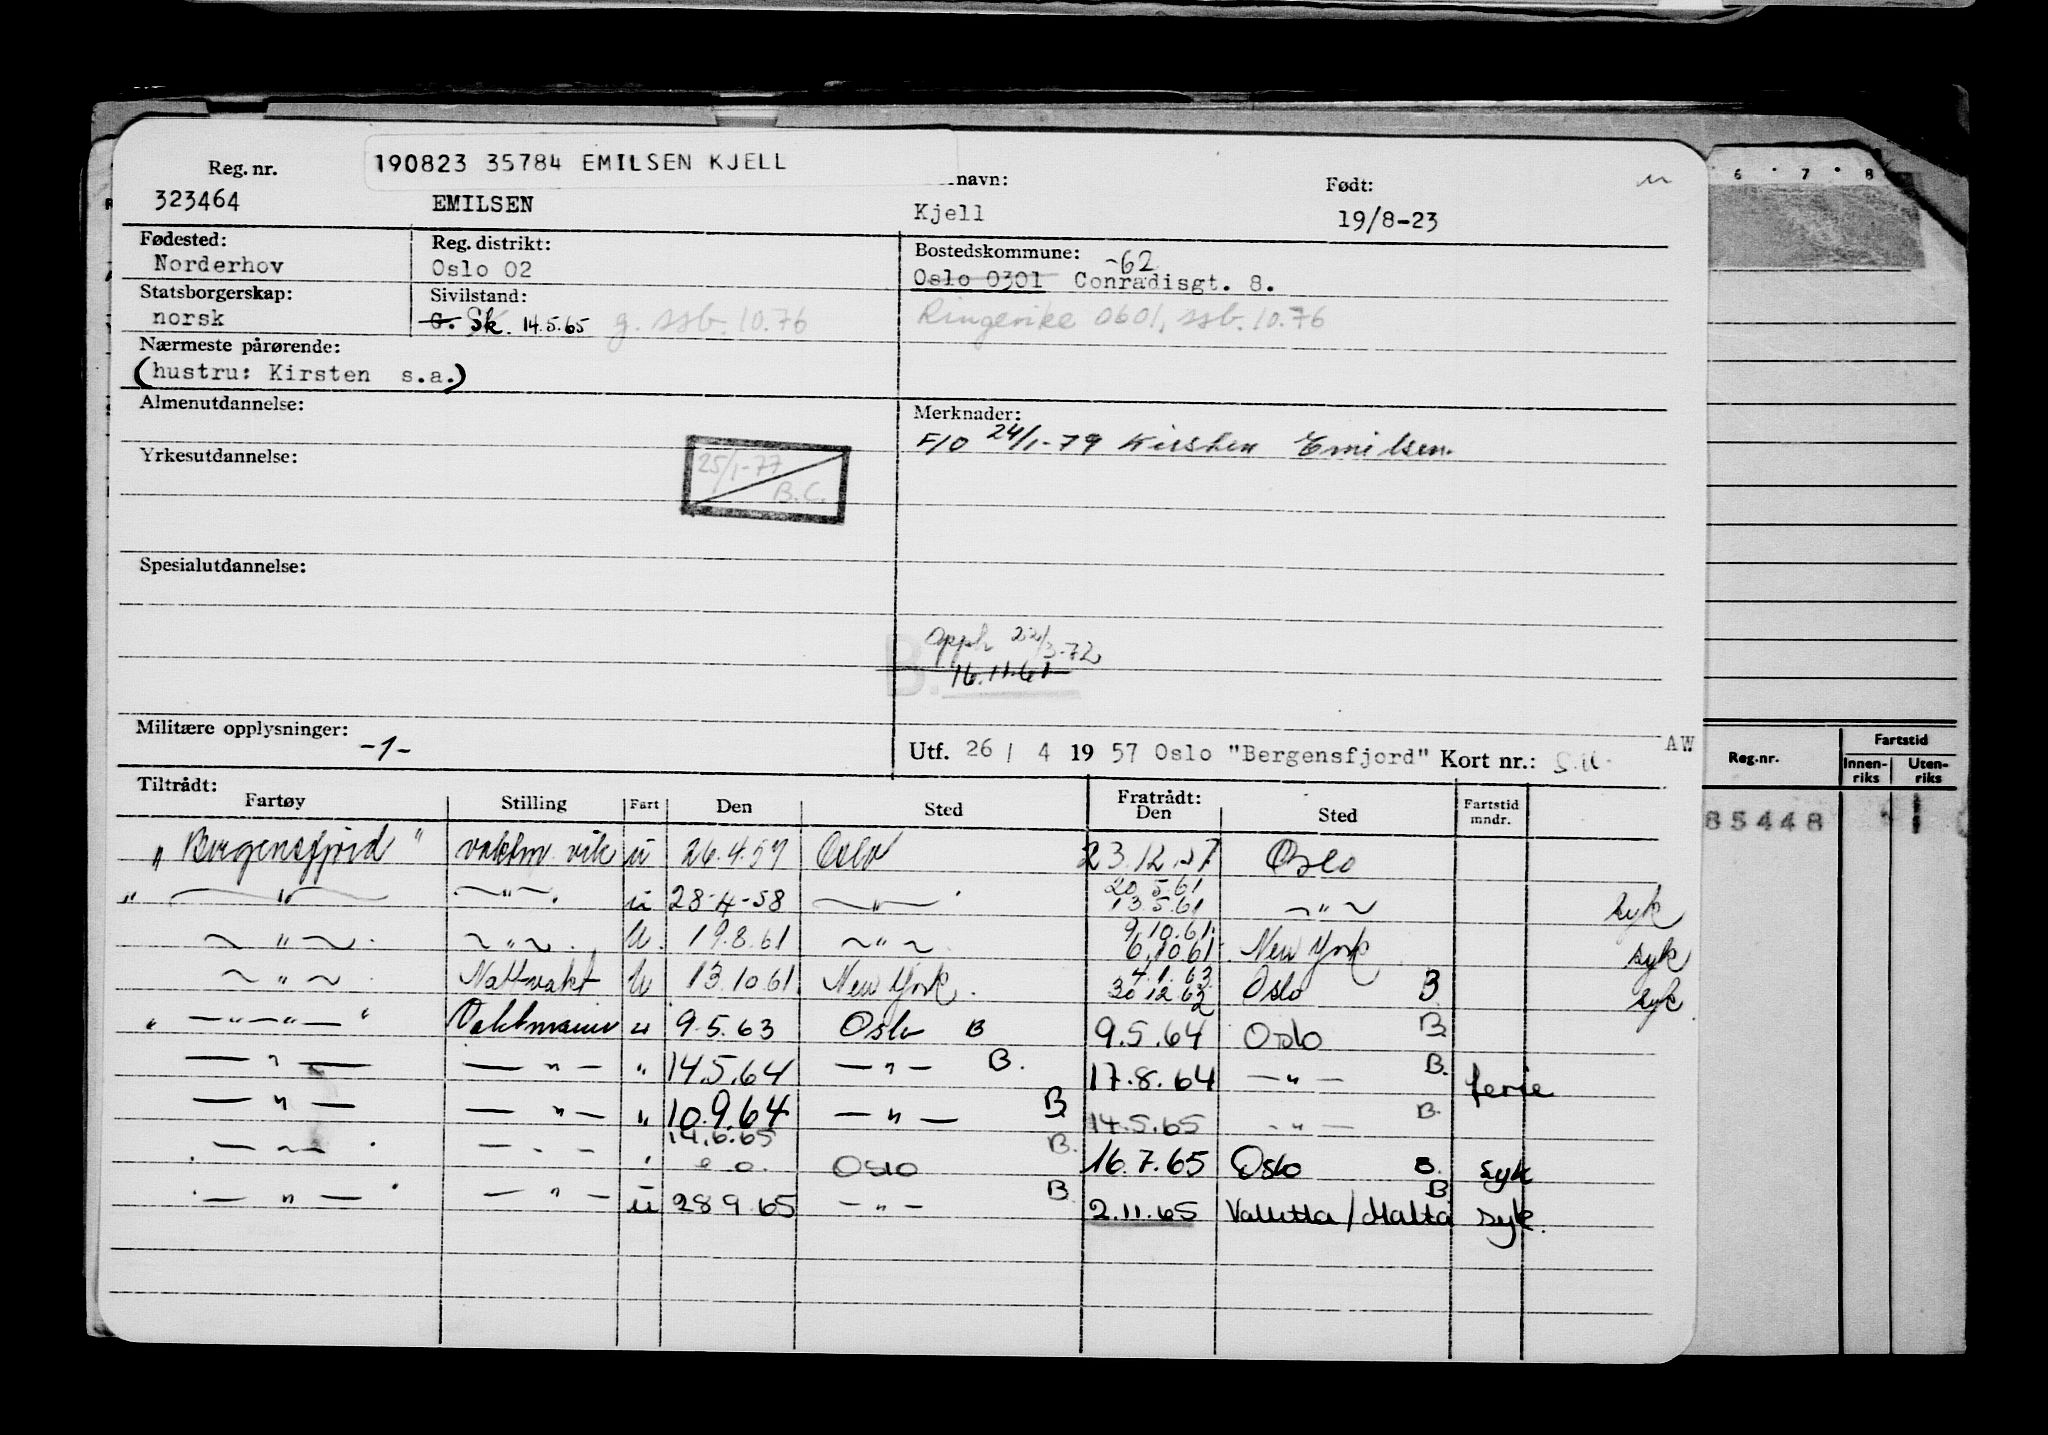 190823 35784 EMILSEN KJELL
Reg. nr. navn: Født:
323464 EMILSEN Kjell 19/8-23
Fødested: Reg. distrikt: Bostedskommune: -62
Norderhov Oslo 02 Oslo 0301 Conradisgt. 8.
Statsborgerskap: Sivilstand:
norsk G. Sk. 14.5.65 g. ssb. 10.76 Ringerike 0601, ssb. 10.76
Nærmeste pårørende:
(hustru: Kirsten s.a.)
Almenutdannelse: Merknader:
F/O 24/1-79 Kirsten Emilsen.
Yrkesutdannelse: 25/1-77 B.C.
Spesialutdannelse:
Opph 22/3-72
B. 16.11.61
Militære opplysninger: -1-
Utf. 26 / 4 19 57 Oslo "Bergensfjord" Kort nr.: AW
Tiltrådt: Fratrådt:
Fartøy Stilling Fart Den Sted Den Sted Fartstid mndr.
"Bergensfjord" vaktm. vik u 26.4.57 Oslo 23.12.57 Oslo
" — " — — " — u 28-4-58 — " — 20.5.61 13.5.61 — " — syk
— " — — " — U. 19.8.61 — " — 9.10.61 6.10.61 New York syk
— " — Nattvakt U 13.10.61 New York. 4.1.63 30.12.62 Oslo B syk
" — " — " — " Vaktmann u 9.5.63 Oslo B 9.5.64 Oslo B
— " — — " — " 14.5.64 — " — B. 17.8.64 — " — B. ferie
— " — — " — " 10.9.64 — " — B 14.5.65 — " — B.
— " — — " — " 14.6.65 Oslo B. 16.7.65 Oslo B. syk
— " — — " — u 28 9.65 — " — B 2.11.65 Valletta / Malta B syk.
6 7 8
Reg.nr. Fartstid
Innenriks Utenriks
85448